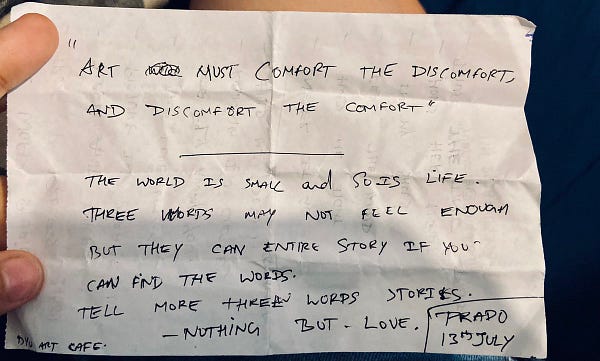 "ART MUST COMFORT THE DISCOMFORT,
AND DISCOMFORT THE COMFORT"
THE WORLD IS SMALL and SO IS LIFE.
THREE WORDS MAY NOT FEEL ENOUGH
BUT THEY CAN ENTIRE STORY IF YOU
CAN FIND THE WORDS.
TELL MORE THREE WORDS STORIES.
— NOTHING BUT - LOVE.
PRADO
13TH JULY
DYU ART CAFE.